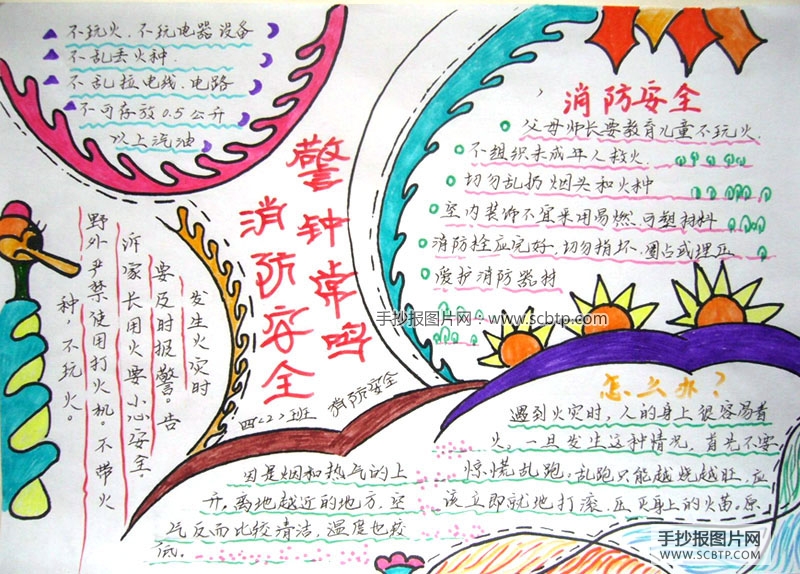 不玩火、不玩电器设备
不乱丢火种
不乱拉电线、电路
不可存放0.5公升
以上汽油
警钟常鸣
消防安全
四<2>班 消防安全
消防安全
父母师长要教育儿童不玩火
不组织未成年人救火
切勿乱扔烟头和火种
室内装饰不宜采用易燃可塑材料
消防栓应完好,切勿损坏、圈占或埋压
爱护消防器材
手抄报图片网:www.scbtp.com
发生火灾时
要及时报警。告
诉家长用火要小心安全。
野外严禁使用打火机。不带火
种 不玩火。
因是烟和热气的上
升,离地越近的地方,空
气反而比较清洁,温度也较
低。
怎么办?
遇到火灾时,人的身上很容易着
火,一旦发生这种情况,首先不要
惊慌乱跑,乱跑只能越烧越旺,应
该立即就地打滚,压灭身上的火苗。原
手抄报图片网
WWW.SCBTP.COM